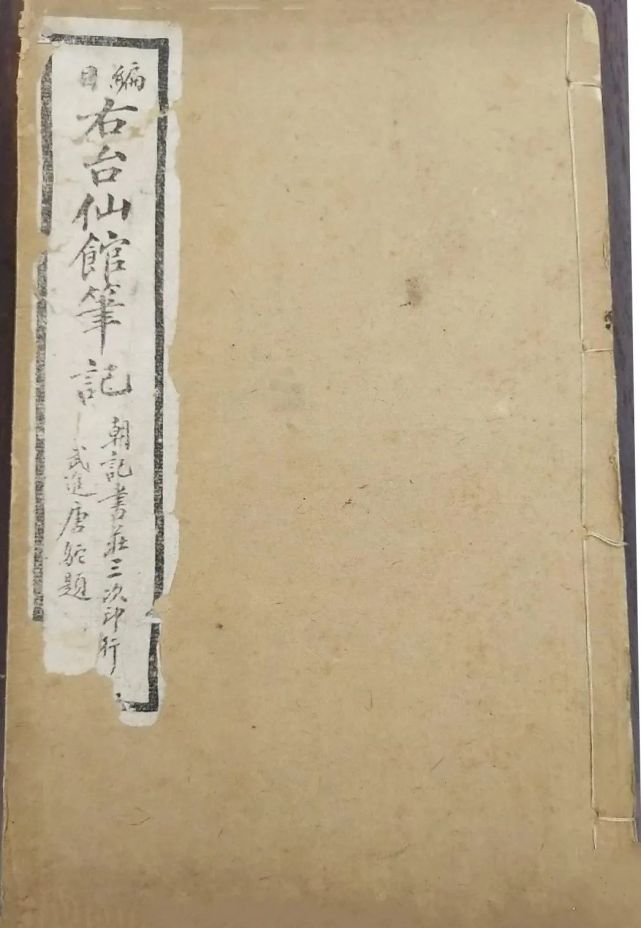 編目
右台仙館筆記
朝記書莊三次印行
武進唐駝題